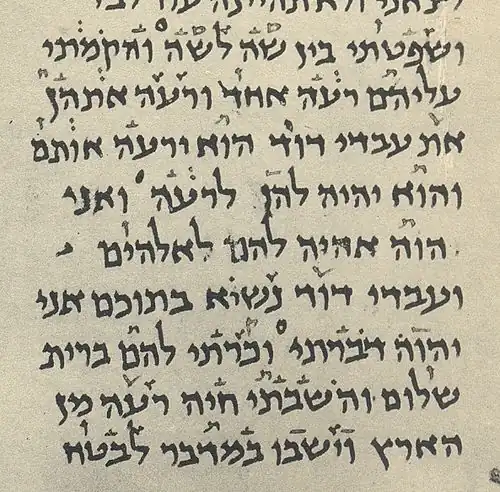 לצאני ולא תהיינה עוד לבז
ושפטתי בין שה לשה והקמתי
עליהם רעה אחד ורעה אתהן
את עבדי דוד הוא ירעה אותם
והוא יהיה להן לרעה ואני
יהוה אהיה להם לאלהים
ועבדי דוד נשיא בתוכם אני
יהוה דברתי וכרתי להם ברית
שלום והשבתי חיה רעה מן
הארץ וישבו במדבר לבטח